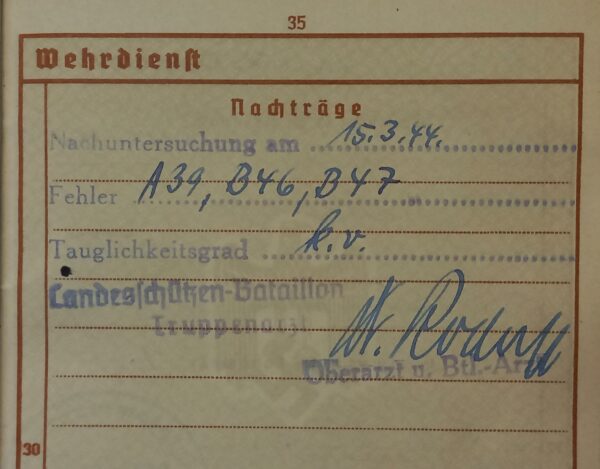 35
Wehrdienst
Nachträge
Nachuntersuchung am 15.3.44.
Fehler A39, B46, B47
Tauglichkeitsgrad k.v.
Landesschützen-Bataillon
Truppenarzt
Oberarzt u. Btl.-Arzt
30